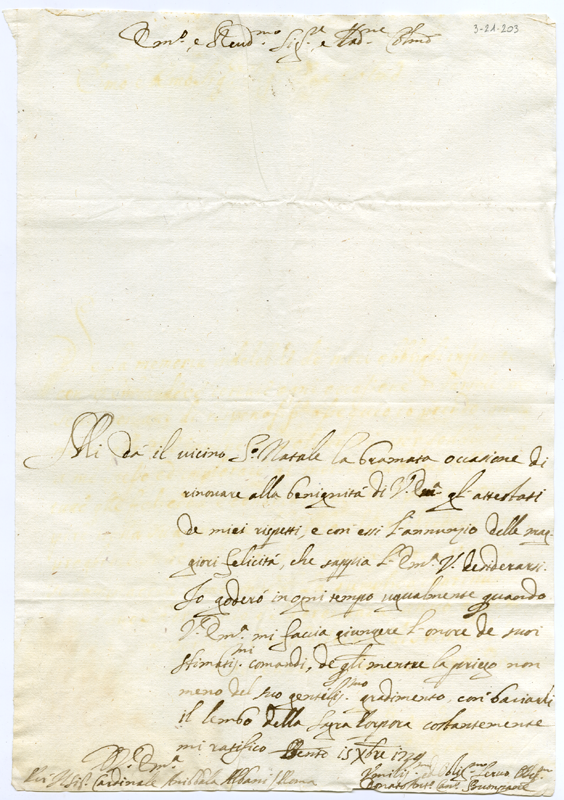 3-21-203
Em.o, e Reud.mo Sig.re e Pad.ne Colmo
Mi dà il vicino S.o Natale la bramata occasione di
rinovare alla benignità di V.Em.a gl'attestati
de miei rispetti, e con essi l'annunzio delle mag-
giori felicità, che sappia l'Em.a V.a desiderarsi.
Io goderò in ogni tempo ugualmente quando
V.Em.a mi faccia giungere l'onore de suoi
stimatis.mi comandi, de gli mentre la priego non
meno del suo gentilis.mo gradimento, con baciarle
il lembo della Sagra Porpora costantemente
mi ratifico Cento 15 Xbre
Di V.Em.a
Sig.r Cardinale Annibale Albani / Roma
Umilis.mo Oblig.mo Servo